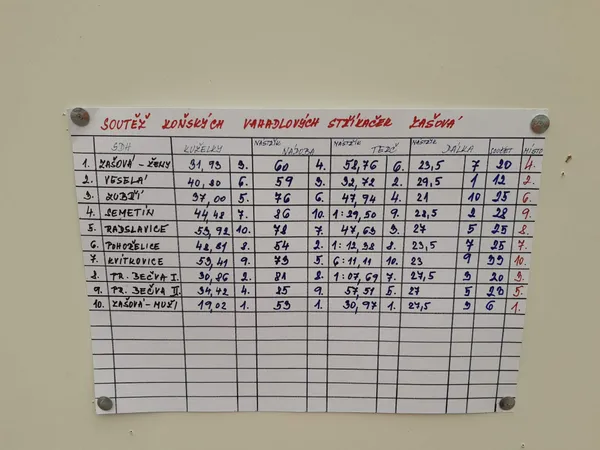 SOUTĚŽ KOŇSKÝCH VAHADLOVÝCH STŘÍKAČEK ZAŠOVÁ
SDH KUŽELKY NÁSTŘIK NÁDOBA NÁSTŘIK TERČ NÁSTŘIK DÁLKA SOUČET MÍSTO
1. ZAŠOVÁ - ŽENY 31,93 3. 60 4. 52,76 6. 23,5 7 20 4.
2. VESELÁ 40,80 6. 59 3. 32,72 2. 29,5 1 12 2.
3. ZUBŘÍ 37,00 5. 76 6. 47,94 4. 21 10 25 6.
4. SEMETÍN 44,48 7. 86 10. 1:29,50 9. 28,5 2 28 9.
5. RADSLAVICE 53,92 10. 78 7. 47,63 3. 27 5 25 8.
6. POHOŘELICE 48,81 8. 54 2. 1:12,38 8. 23,5 7 25 7.
7. KVÍTKOVICE 53,41 9. 73 5. 6:11,11 10. 23 9 33 10.
8. PR. BEČVA I. 30,86 2. 81 8. 1:07,69 7. 27,5 3 20 3.
9. PR. BEČVA II. 34,42 4. 85 9. 57,51 5. 27 5 23 5.
10. ZAŠOVÁ - MUŽI 19,02 1. 53 1. 30,97 1. 27,5 3 6 1.